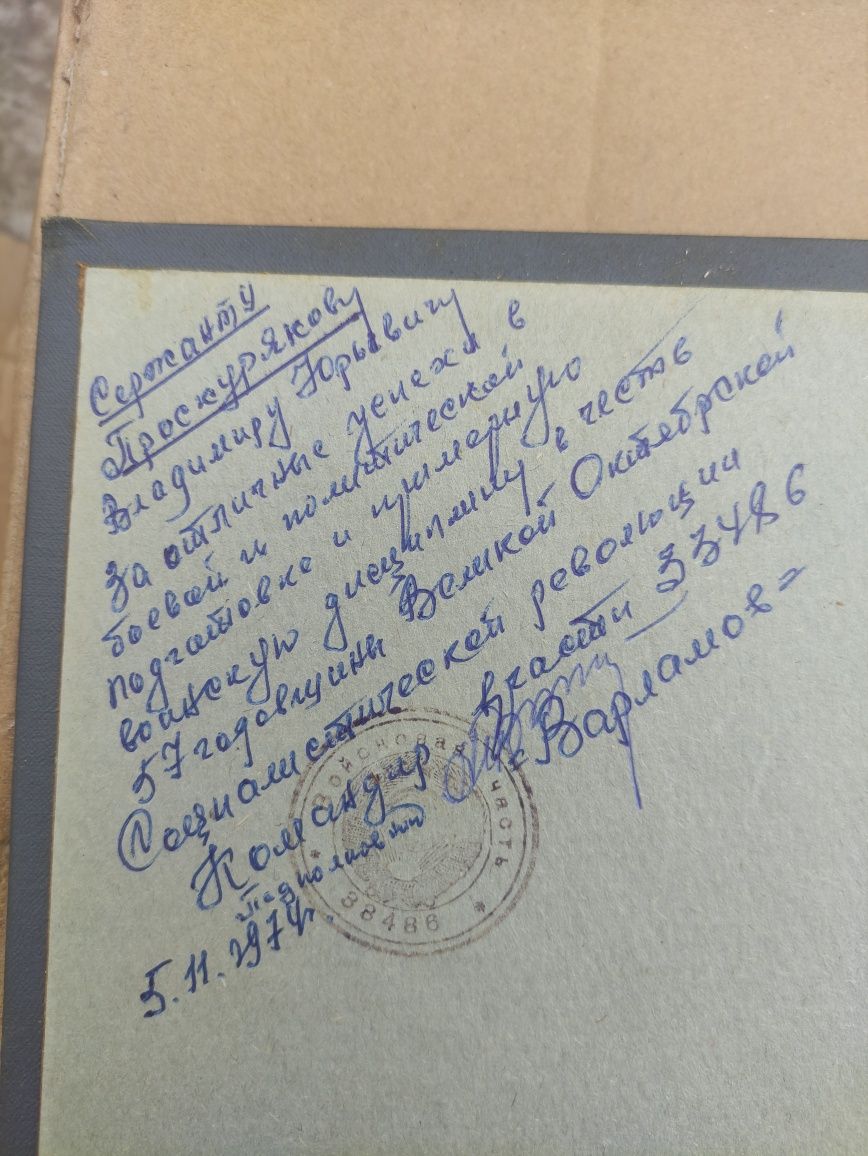 Сержанту
Проскурякову
Владимиру Юрьевичу
За отличные успехи в
боевой и политической
подготовке и примерную
воинскую дисциплину в честь
57 годовщины Великой Октябрской
Социалистической революции
Командир в части 33486
подполковник
Варламов
5.11.1974г.
Войсковая часть
* 38486 *